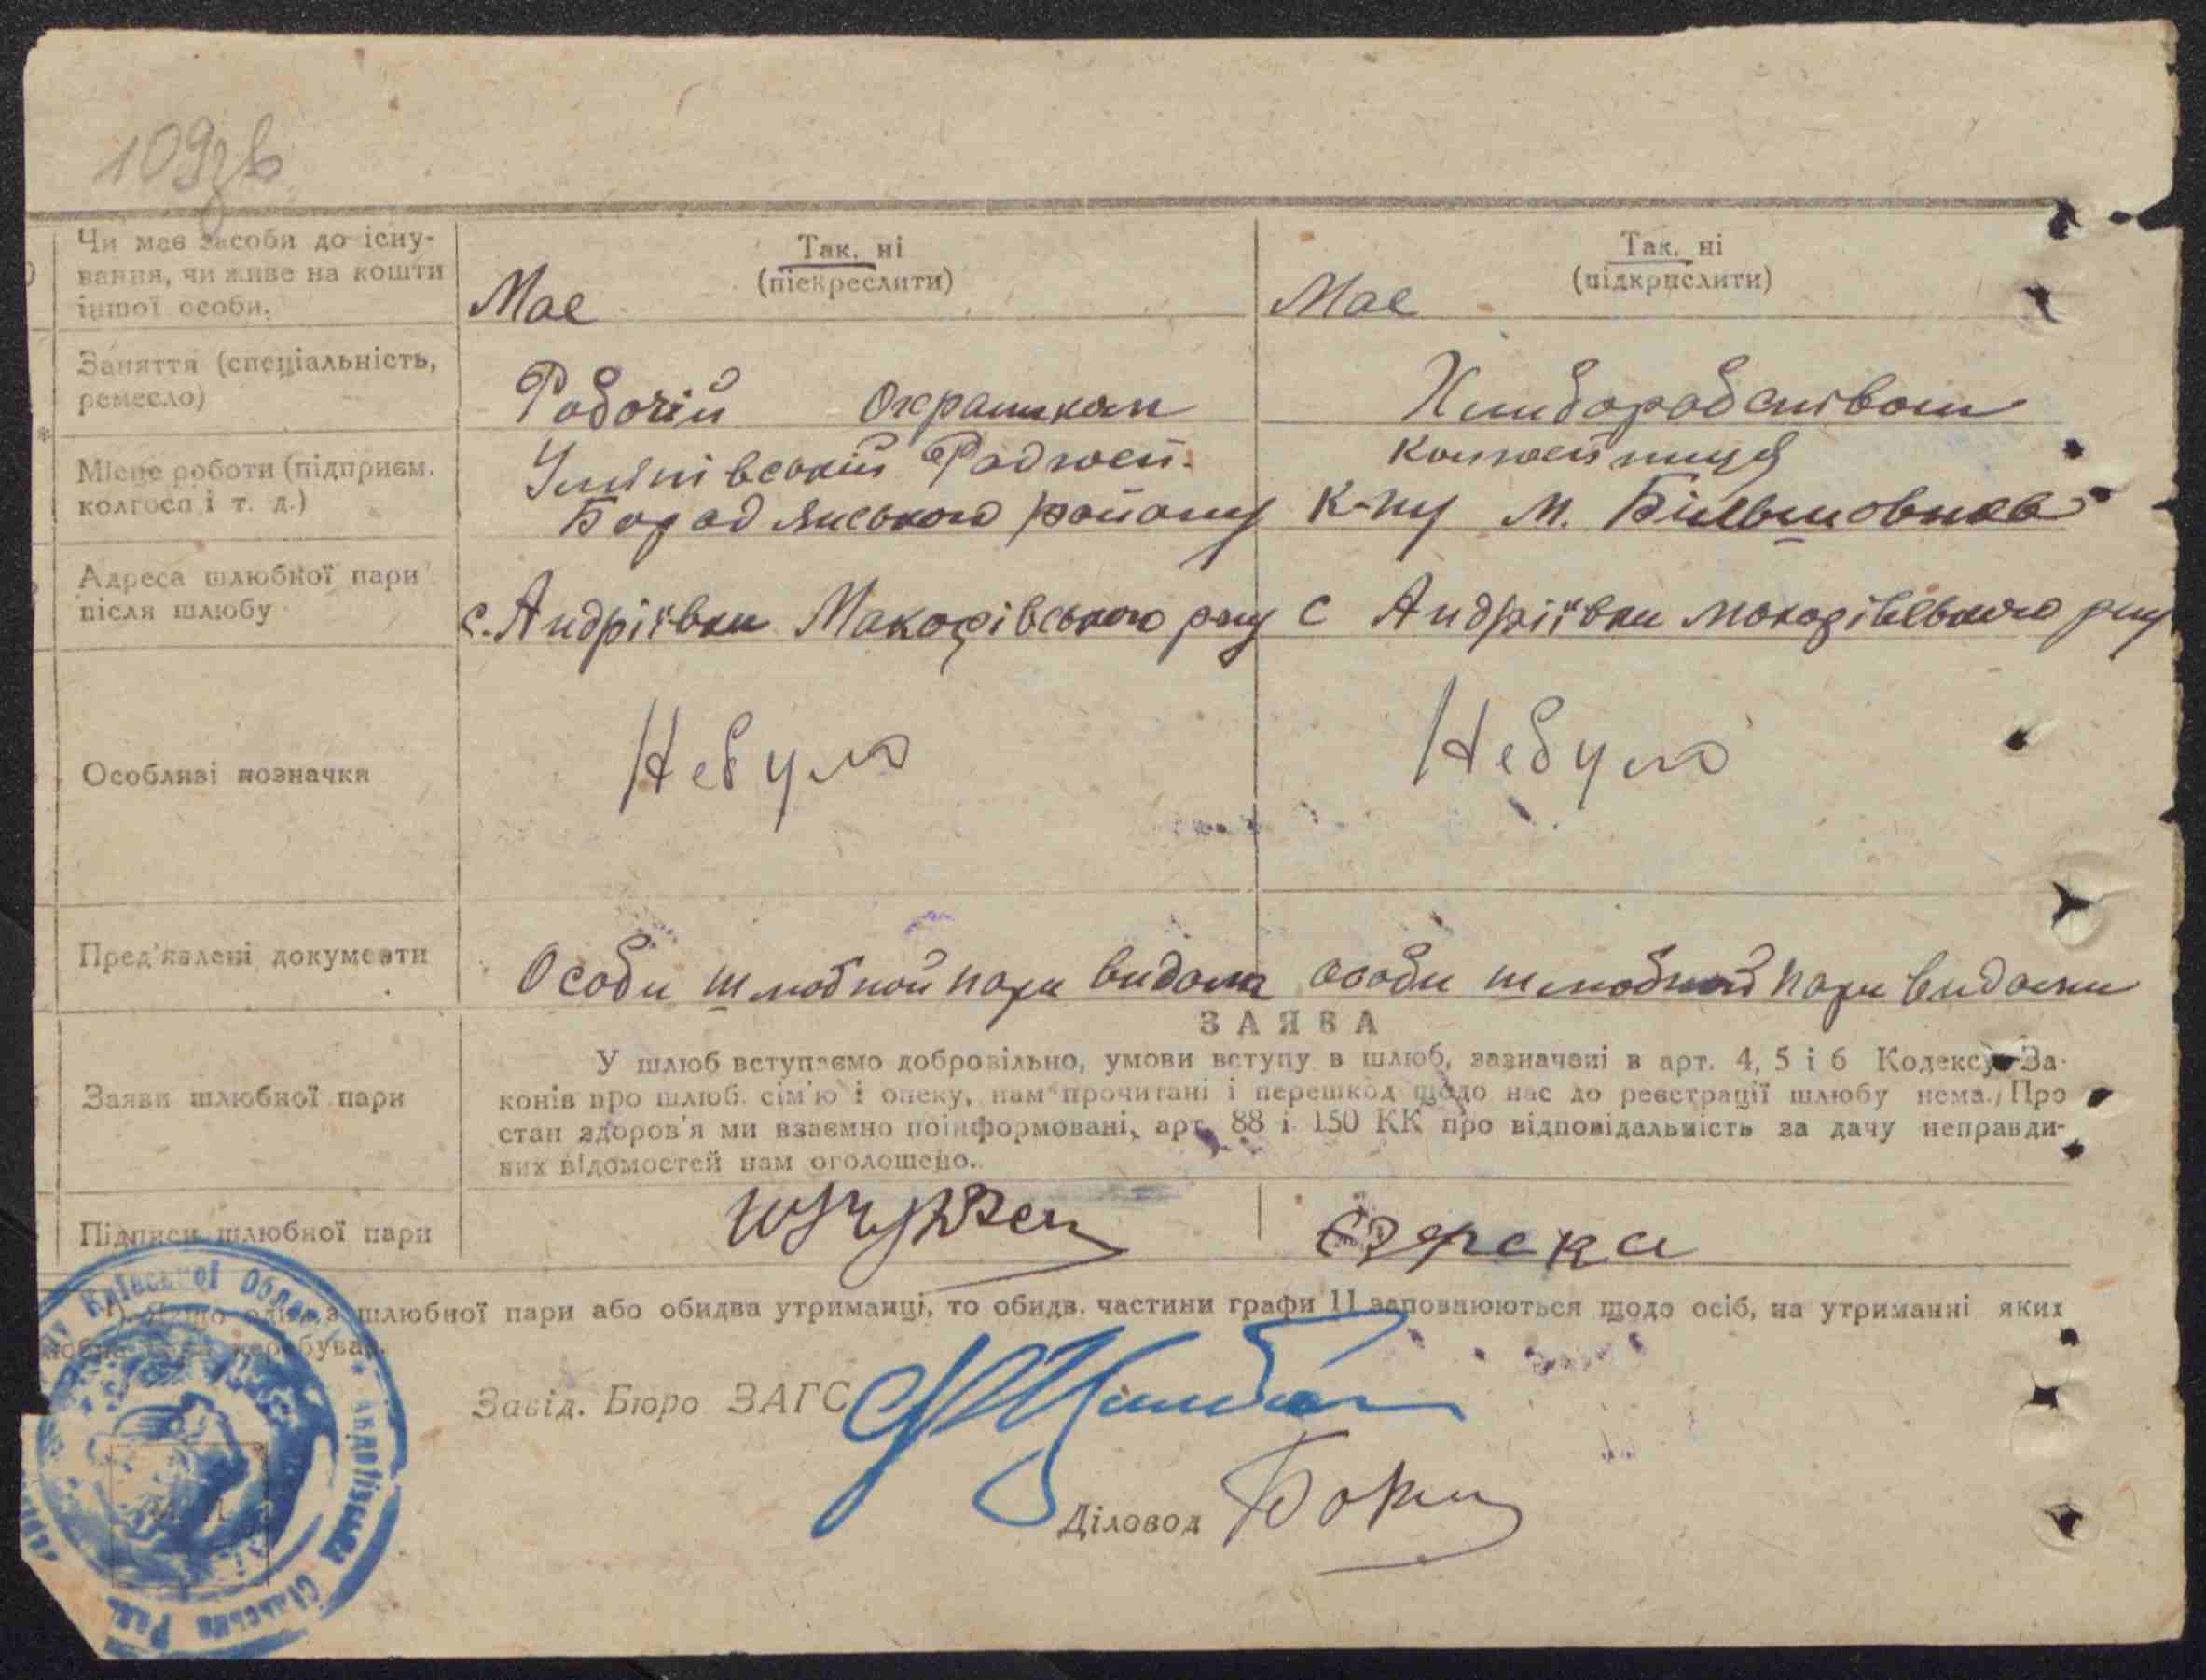 109зв
Чи має засоби до існу-
вання, чи живе на кошти
іншої особи.
Так, ні
(піекреслити)
Має
Так, ні
(підкрислити)
Має
Заняття (спеціальність,
ремесло)
Робочій
Хлиборобством
Місце роботи (підприєм.
колгосп і т. д.)
Радгосп.
Бородянського району
к-пу м. Більшовик
Адреса шлюбної пари
після шлюбу
с. Андріївки Макарівського р-ну
с Андріївки Макарівського р-ну
Особливі позначки
Небуло
Небуло
Пред'явлені документи
Особи шлюбной пари видома
особи шлюбной пари видоми
ЗАЯВА
Заяви шлюбної пари
У шлюб вступаємо добровільно, умови вступу в шлюб, зазначені в арт. 4, 5 і 6 Кодексу За-
конів про шлюб. сім'ю і опеку, нам прочитані і перешкод щодо нас до реєстрації шлюбу нема. Про
стан здоров'я ми взаємно поінформовані, арт. 88 і 150 КК про відповідальність за дачу неправди-
вих відомостей нам оголошено.
Підписи шлюбної пари
Єзерска
1). Якщо один з шлюбної пари або обидва утриманці, то обидв. частини графи 11 заповнюються щодо осіб, на утриманні яких
перебував.
Завід. Бюро ЗАГС
Діловод
Київської Облас
Андріївська Сільська Рада
М. П.